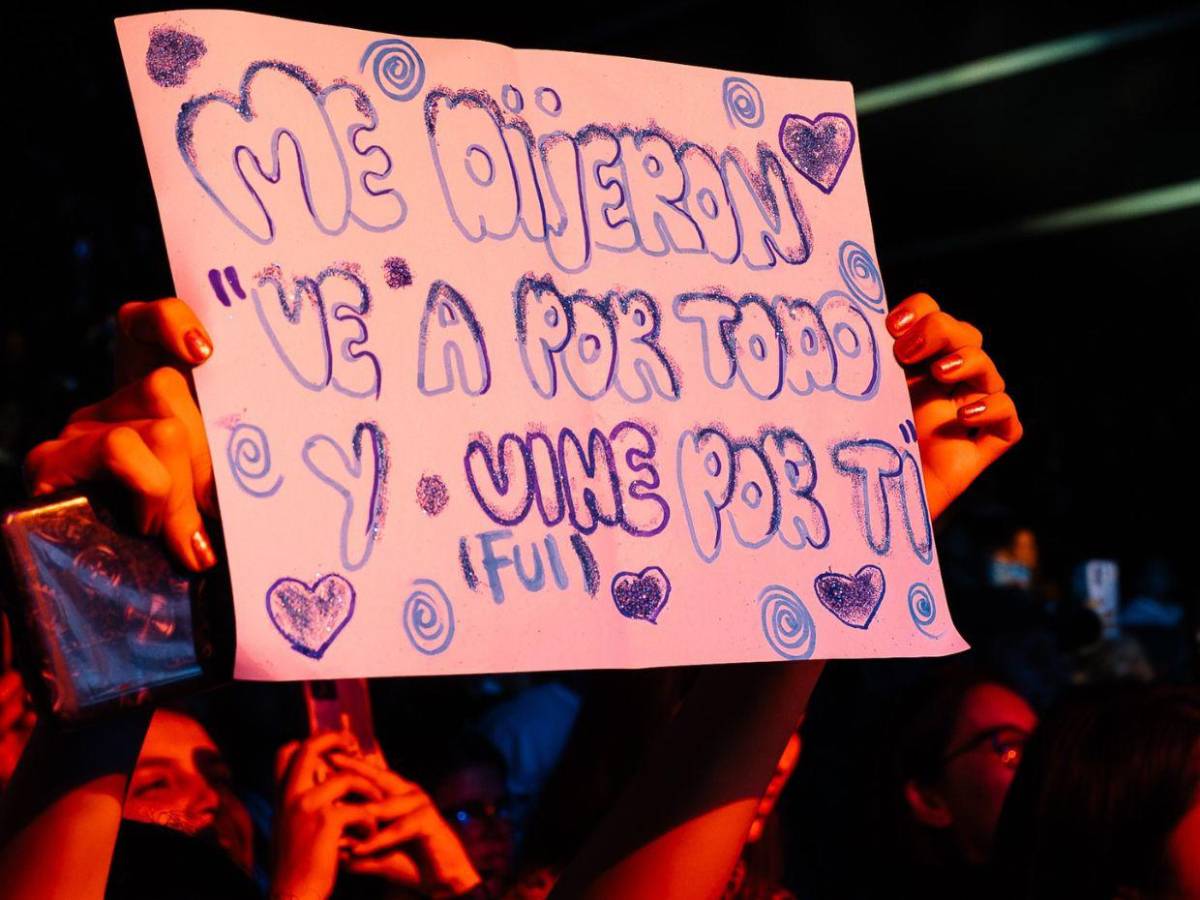 ME DIJERON
"VE A POR TODO
Y VINE POR TI"
(FUI)